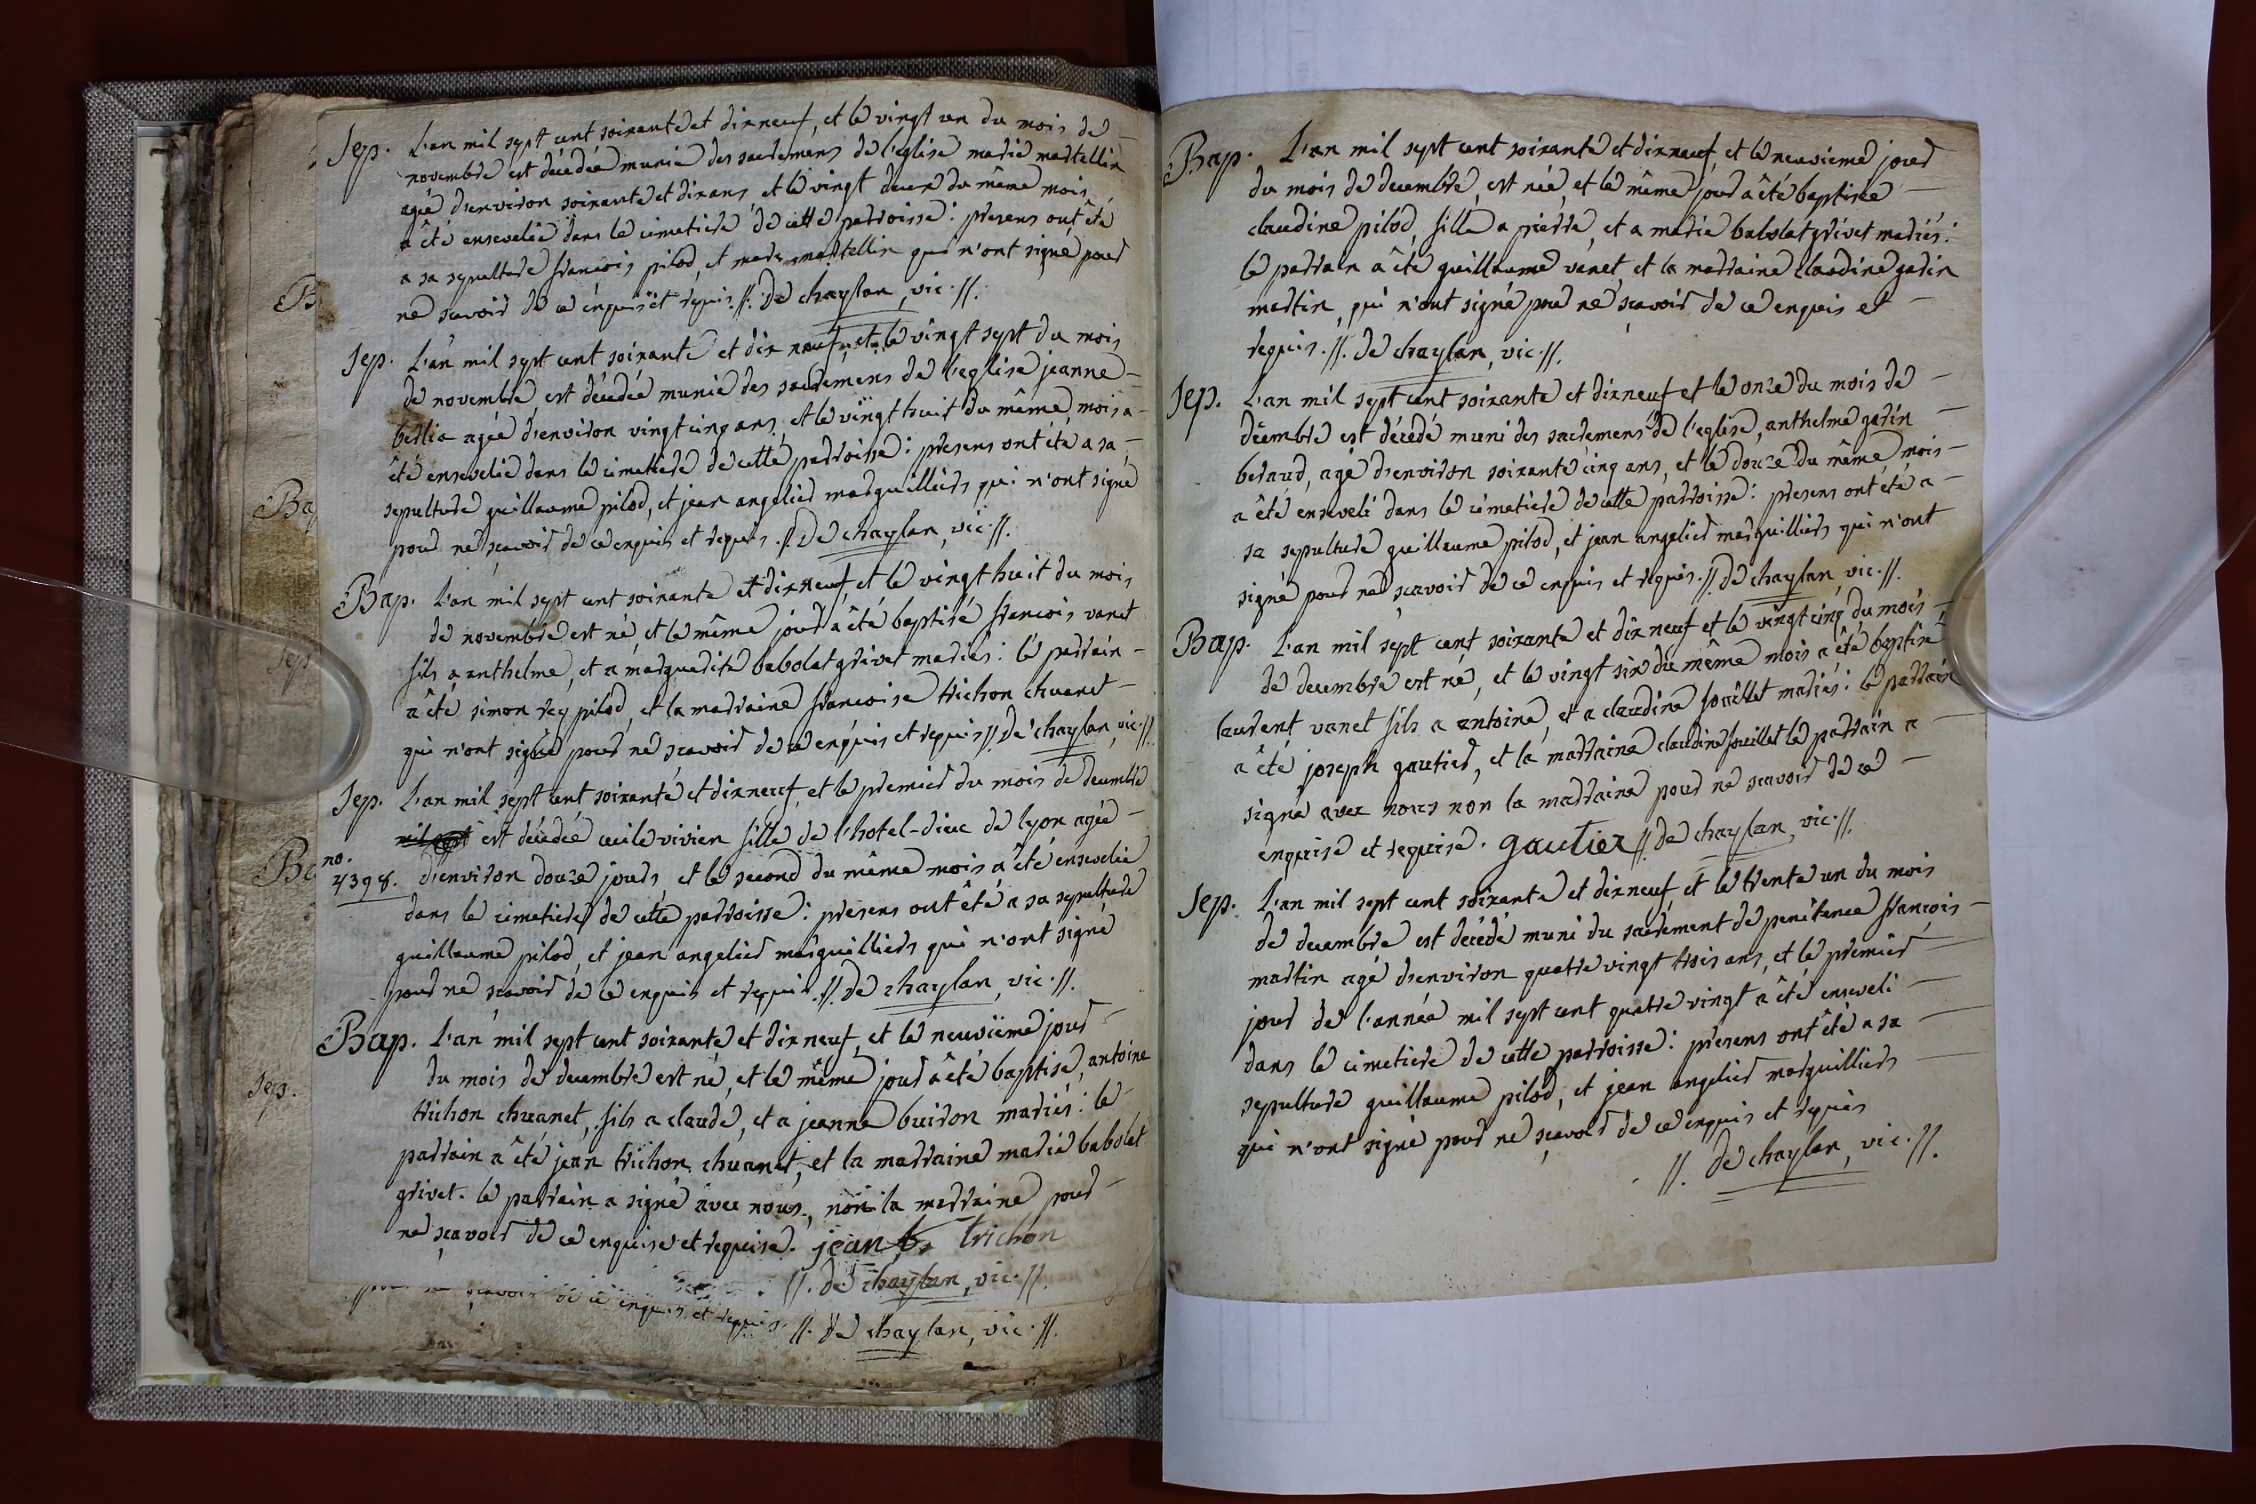 Sep. L'an mil sept cent soixante et dixneuf, et le vingt un du mois de
novembre est décédée munie des sacremens de l'eglise marie martellin
agée d'environ soixante et dix ans, et le vingt deux du même mois
a été ensevelie dans le cimetiere de cette parroisse : presens ont été
a sa sepulture francois pilod, et marc martellin qui n'ont signé pour
ne scavoir de ce enquis et requis. //. de chaylan, vic. //.
Sep. L'an mil sept cent soixante et dix neuf, et le vingt sept du mois
de novembre est décédée munie des sacremens de l'eglise jeanne
berlia agée d'environ vingt cinq ans, et le vingt huit du même mois a
été ensevelie dans le cimetiere de cette parroisse : presens ont été a sa
sepulture guillaume pilod, et jean angelier marguilliers qui n'ont signé
pour ne sçavoir de ce enquis et requis. //. de chaylan, vic. //.
Bap. L'an mil sept cent soixante et dixneuf, et le vingt huit du mois
de novembre est né, et le même jour a été baptisé francois vanet
fils a anthelme, et a marguerite babolat grivet mariés : le parrain
a été simon rey pilod, et la marraine francoise trichon chuanet
qui n'ont signé pour ne scavoir de ce enquis et requis //. de chaylan, vic. //.
Sep. L'an mil sept cent soixante et dixneuf, et le premier du mois de decembre
est décédée cecile vivien fille de l'hotel-dieu de lyon agée
no.
4398. d'environ douze jours, et le second du même mois a été ensevelie
dans le cimetiere de cette parroisse : presens ont été a sa sepulture
guillaume pilod, et jean angelier marguilliers qui n'ont signé
pour ne sçavoir de ce enquis et requis. //. de chaylan, vic. //.
Bap. L'an mil sept cent soixante et dixneuf, et le neuvieme jour
du mois de decembre est né, et le même jour a été baptisé, antoine
trichon chuanet, fils a claude, et a jeanne buiron mariés : le
parrain a été jean trichon chuanet, et la marraine marie babolat
grivet. le parrain a signé avec nous, non la marraine pour
ne sçavoir de ce enquise et requise. jean trichon
//. de chaylan, vic. //.
scavoir de ce enquis et requis. //. de chaylan, vic. //.
Bap. L'an mil sept cent soixante et dixneuf, et le neuvieme jour
du mois de decembre, est née, et le même jour a été baptisée
claudine pilod, fille a pierre, et a marie babolat grivet mariés :
le parrain a été guillaume vanet, et la marraine claudine garin
martin, qui n'ont signé pour ne sçavoir de ce enquis et
requis. //. de chaylan, vic. //.
Sep. L'an mil sept cent soixante et dixneuf et le onze du mois de
décembre est décédé muni des sacremens de l'eglise, anthelme garin
beraud, agé d'environ soixante cinq ans, et le douze du même mois
a été enseveli dans le cimetiere de cette parroisse : presens ont été a
sa sepulture guillaume pilod, et jean angelier marguilliers qui n'ont
signé pour ne sçavoir de ce enquis et requis. //. de chaylan, vic. //.
Bap. L'an mil sept cent soixante et dix neuf et le vingt cinq du mois
de decembre est né, et le vingt six du même mois a été baptisé
laurent vanet fils a antoine, et a claudine fouillet mariés : le parrain
a été joseph gautier, et la marraine claudine fouillet le parrain a
signé avec nous non la marraine pour ne scavoir de ce
enquise et requise. gautier //. de chaylan, vic. //.
Sep. L'an mil sept cent soixante et dixneuf, et le trente un du mois
de decembre est décédé muni du sacrement de penitence françois
martin agé d'environ quatre vingt trois ans, et le premier
jour de l'année mil sept cent quatre vingt a été enseveli
dans le cimetiere de cette parroisse : presens ont été a sa
sepulture guillaume pilod, et jean angelier marguilliers
qui n'ont signé pour ne sçavoir de ce enquis et requis
//. de chaylan, vic. //.